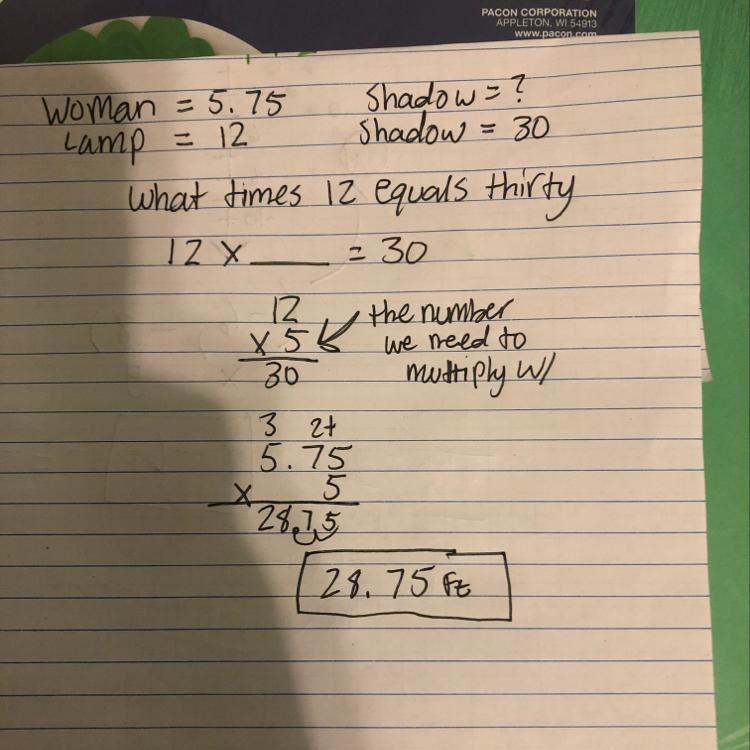 PACON CORPORATION
APPLETON, WI 54913
www.pacon.com
Woman = 5.75 Shadow = ?
Lamp = 12 Shadow = 30
What times 12 equals thirty
12 x ____ = 30
12
x 5
30
the number
we need to
multiply w/
3 2+
5.75
x 5
28.75
28.75 ft